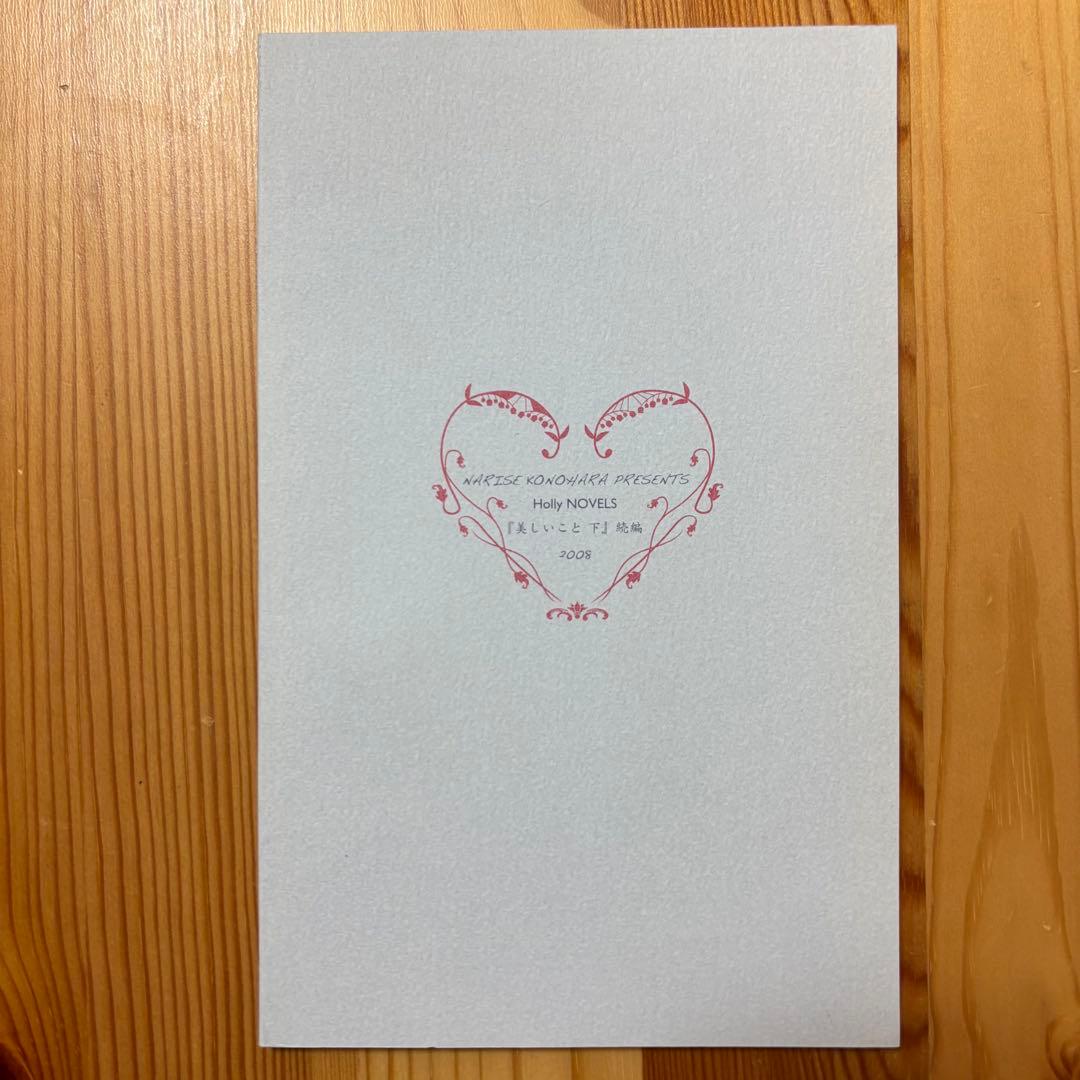 NARISE KONOHARA PRESENTS
Holly NOVELS
『美しいこと 下』続編
2008